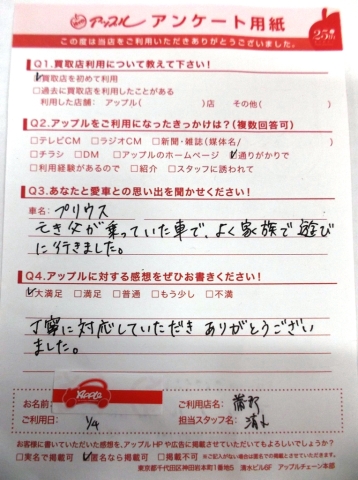 アップル アンケート用紙
25th
この度は当店をご利用いただきありがとうございました。
Q1.買取店利用について教えて下さい!
☑買取店を初めて利用
□過去に買取店を利用したことがある
利用した店舗: アップル( )店 その他( )
Q2.アップルをご利用になったきっかけは?(複数回答可)
□テレビCM □ラジオCM □新聞・雑誌(媒体名/ )
□チラシ □DM □アップルのホームページ ☑通りがかりで
□利用経験があるので □紹介 □スタッフに誘われて
Q3.あなたと愛車との思い出を聞かせください!
車名: プリウス
亡き父が乗っていた車で、よく家族で遊び
に行きました。
Q4.アップルに対する感想をぜひお書きください!
☑大満足 □満足 □普通 □もう少し □不満
丁寧に対応していただきありがとうござい
ました。
お名前
ご利用店名: 蒲郡
ご利用日: 1/4
担当スタッフ名: 清水
お客様に書いていただいた感想を、アップルHPや広告に掲載させていただいてもよろしいでしょうか?
□実名で掲載可 ☑匿名なら掲載可 □不可
※ご記入がない場合は匿名での掲載とさせていただきます。
東京都千代田区神田岩本町1番地5 清水ビル6F アップルチェーン本部